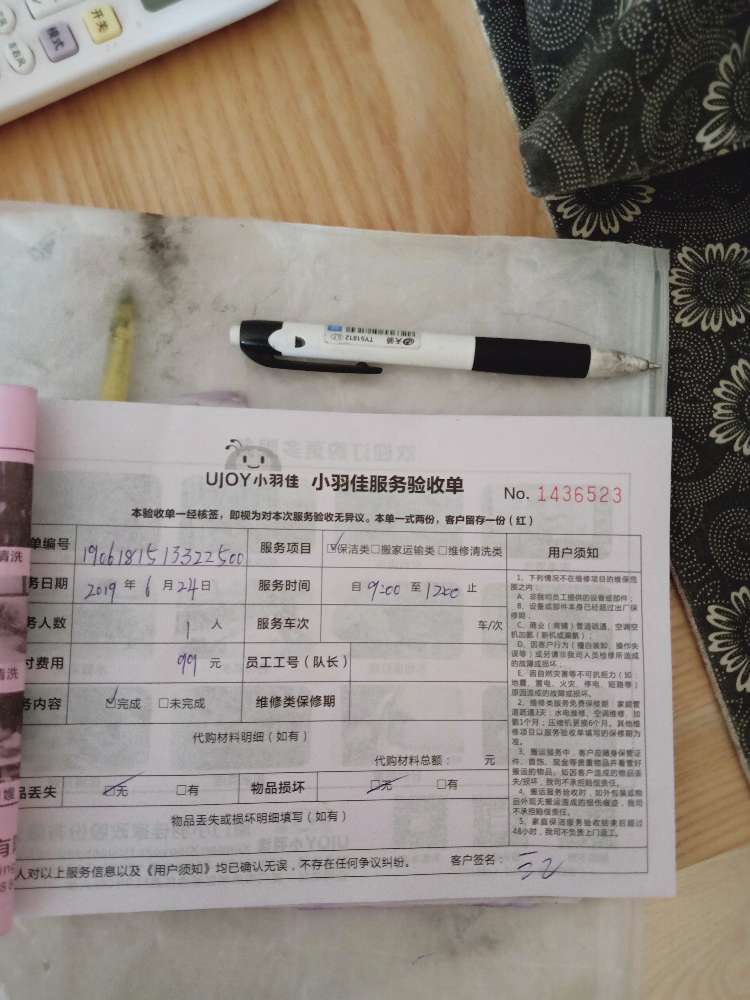 开关
模式
天骄 TY51812
UJOY小羽佳 小羽佳服务验收单 No. 1436523
本验收单一经核签，即视为对本次服务验收无异议。本单一式两份，客户留存一份（红）
单编号 1906181513322500 服务项目 ☑保洁类□搬家运输类□维修清洗类 用户须知
务日期 2019 年 6 月 24 日 服务时间 自 9:00 至 12:00 止
务人数 1 人 服务车次 车/次
付费用 99 元 员工工号（队长）
务内容 ☑完成 □未完成 维修类保修期
代购材料明细（如有）
代购材料总额： 元
品丢失 ☑无 □有 物品损坏 ☑无 □有
物品丢失或损坏明细填写（如有）
人对以上服务信息以及《用户须知》均已确认无误，不存在任何争议纠纷。 客户签名：
1、下列情况不在维修项目的维保范
围之内：
A、非我司员工提供的设备或部件；
B、设备或部件本身已经超过出厂保
修期；
C、商业（商铺）管道疏通、空调空
机加氟（新机或漏氟）；
D、因客户行为（擅自装卸、操作失
误等）或另请非我司人员检修所造成
的故障或损坏；
E、因自然灾害等不可抗力（如：
地震、雷电、火灾、停电、短路等）
原因造成的故障或损坏。
2、维修类服务免费保修期：家庭管
道疏通3天；水电维修、空调维修、加
氟1个月；压缩机更换6个月。其他维
修项目以服务验收单填写的保修期为
准。
3、搬运服务中，客户应随身保管证
件、首饰、现金等贵重物品并看管好
搬运的物品。如因客户造成的物品丢
失/损坏，我司不承担赔偿责任。
4、搬运服务验收时，如外包装或物
品外观无搬运造成的损伤痕迹，我司
不承担赔偿责任。
5、家庭保洁服务验收结束后超过
48小时，我司不负责上门返工。
清洗
清洗